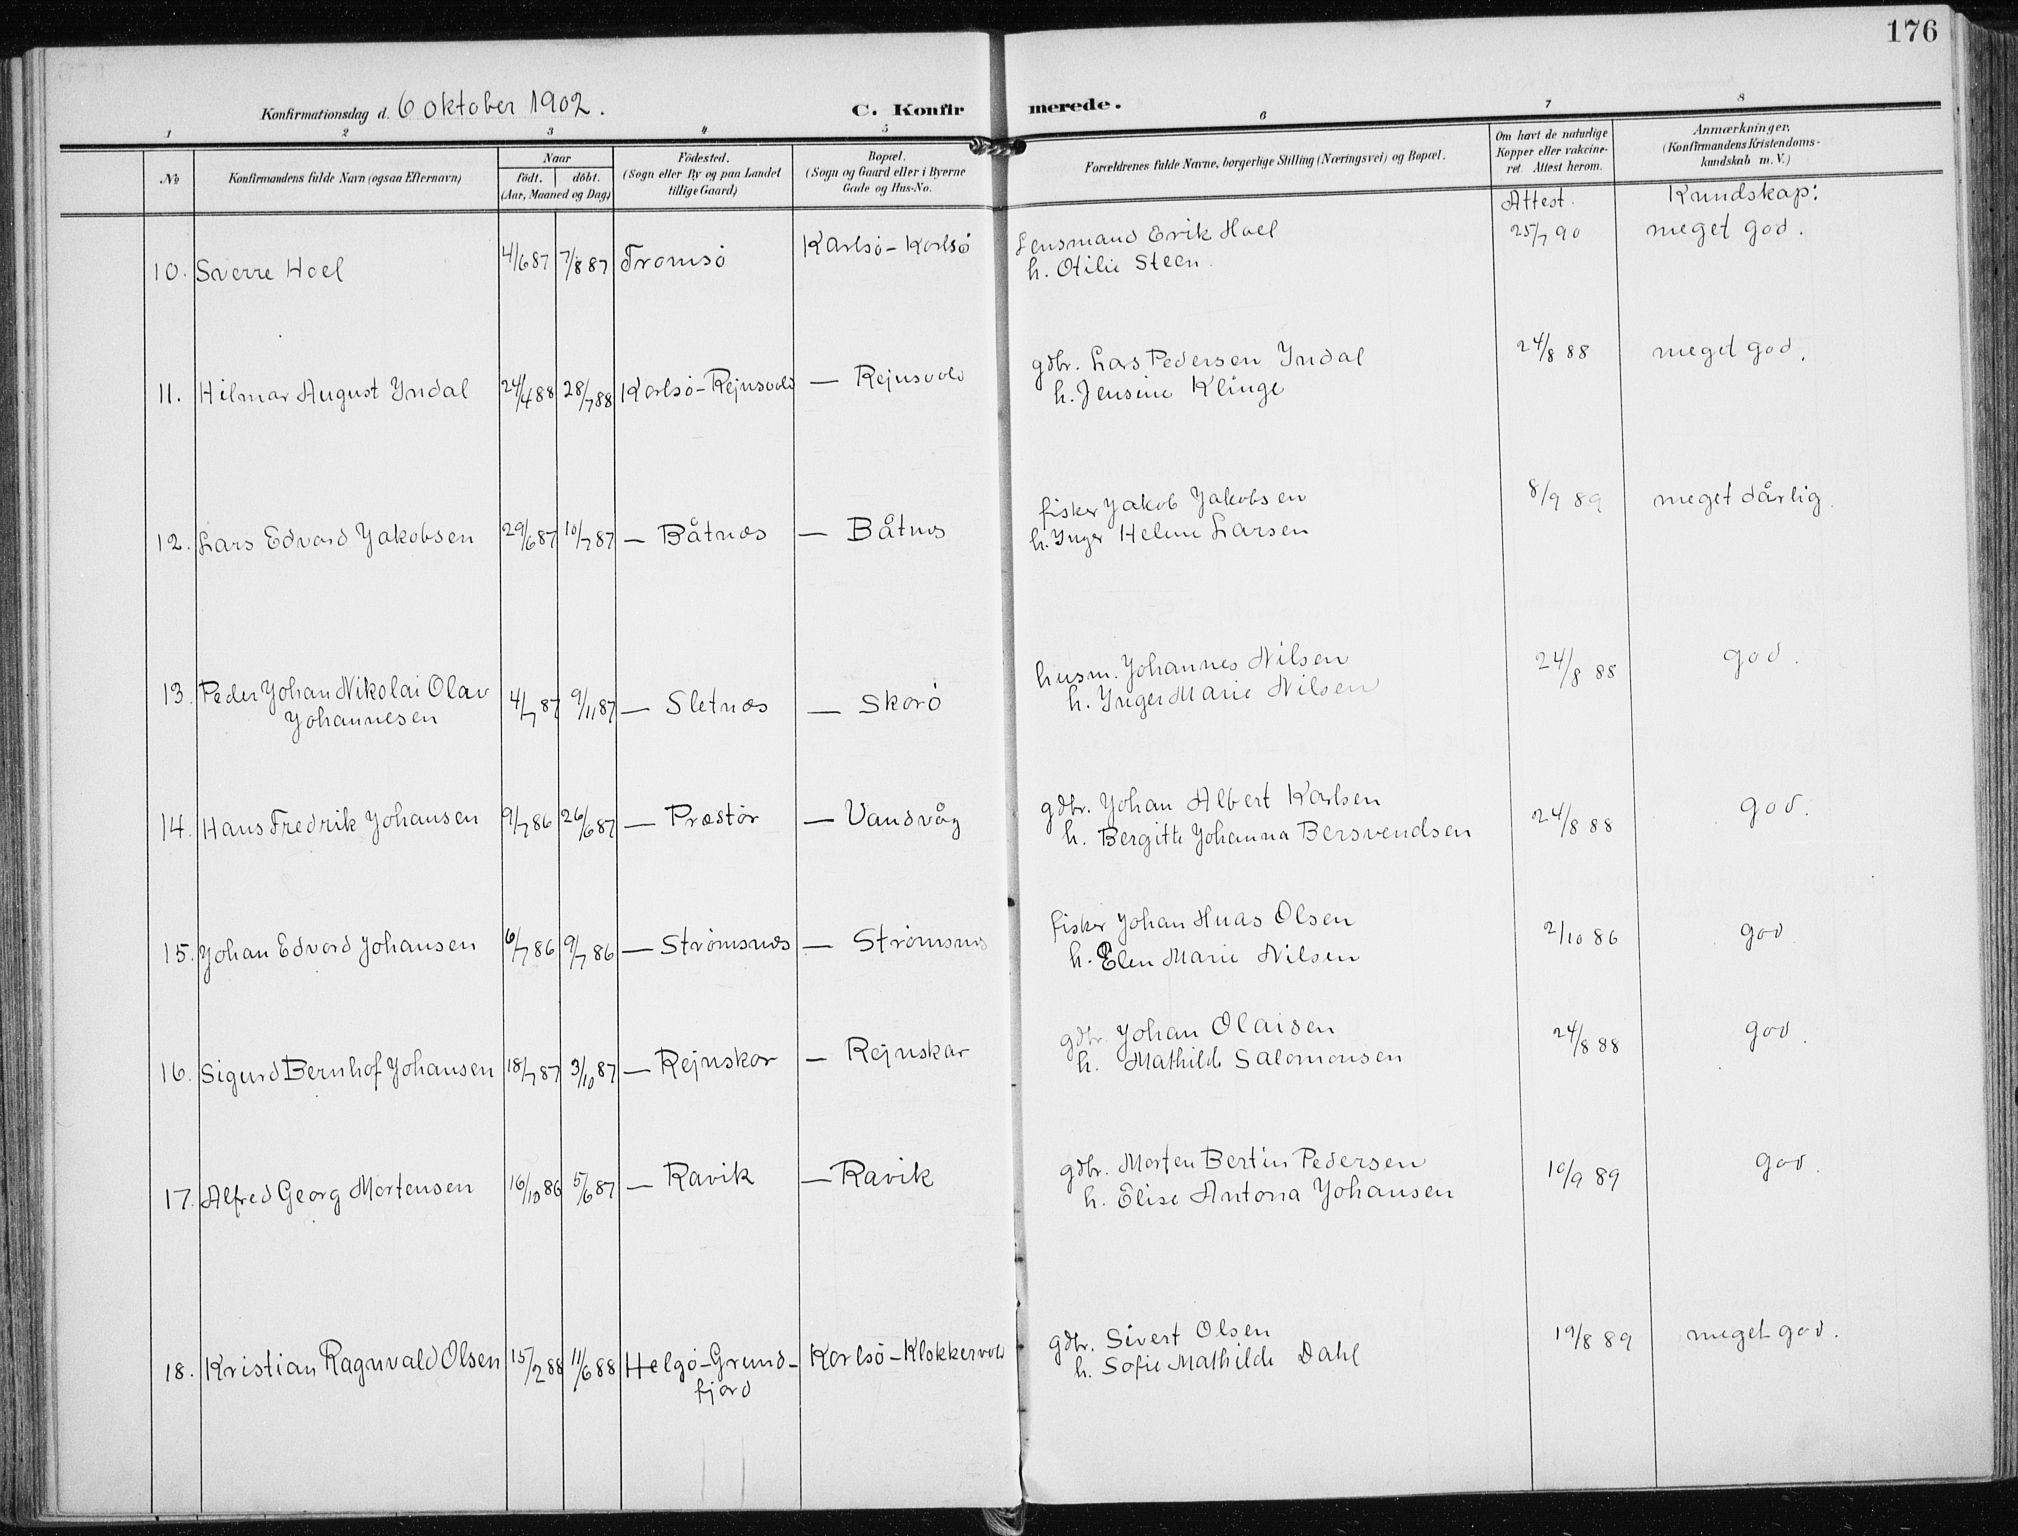 176
Konfirmationsdag d. 6 oktober 1902. C. Konfir merede.
1 2 3 4 5 6 7 8
No
Konfirmandens fulde Navn (ogsaa Efternavn)
Naar
födt. döbt.
(Aar, Maaned og Dag)
Födested.
(Sogn eller By og paa Landet
tillige Gaard)
Bopæl.
(Sogn og Gaard eller i Byerne
Gade og Hus-No.
Forældrenes fulde Navne, borgerlige Stilling (Næringsvei) og Bopæl.
Om havt de naturlige
Kopper eller vakcine-
ret. Attest herom.
Anmærkninger.
(Konfirmandens Kristendoms-
kundskab m. V.)
Attest. Kundskap:
Lensmand Erik Hoel 25/7 90 meget god.
10. Sverre Hoel 4/6 87 7/8 87 Tromsö Karlsö - Karlsö
h. Otilie Steen.
gdbr. Lars Pedersen Yndal 24/8 88 meget god.
11. Hilmar August Yndal 24/4 88 28/7 88 Karlsö - Rejnsvold — Rejnsvold
h. Jensine Klinge
fisker Yakob Yakobsen 8/9 89 meget dårlig.
12. Lars Edvard Yakobsen 29/6 87 10/7 87 — Båtnæs — Båtnæs
h. Inger Helene Larsen
husm. Yohannes Nilsen 24/8 88 god.
13. Peder Yohan Nikolai Olav
Yohannesen 4/7 87 9/11 87 — Sletnæs — Skorö
h. Ynger Marie Nilsen
gdbr. Yohan Albert Karlsen 24/8 88 god.
14. Hans Fredrik Yohansen 9/7 86 26/6 87 — Præstör — Vandvåg
h. Bergitte Yohanna Bersvendsen
fisker Yohan Huas Olsen 2/10 86 god
15. Yohan Edvard Yohansen 6/7 86 9/7 86 — Strömsnæs — Strömsnæs
h. Elen Marie Nilsen
gdbr. Yohan Olaisen 24/8 88 god.
16. Sigurd Bernhof Yohansen 18/7 87 3/10 87 — Rejnskar — Rejnskar
h. Mathilde Salomonsen
gdbr. Morten Bertin Pedersen 10/9 89 god.
17. Alfred Georg Mortensen 16/10 86 5/6 87 — Ravik — Ravik
h. Elise Antona Yohansen
gdbr. Sivert Olsen 19/8 89 meget god.
18. Kristian Ragnvald Olsen 15/2 88 11/6 88 Helgö - Grund-
fjord Karlsö - Klokkervold
h. Sofie Mathilde Dahl